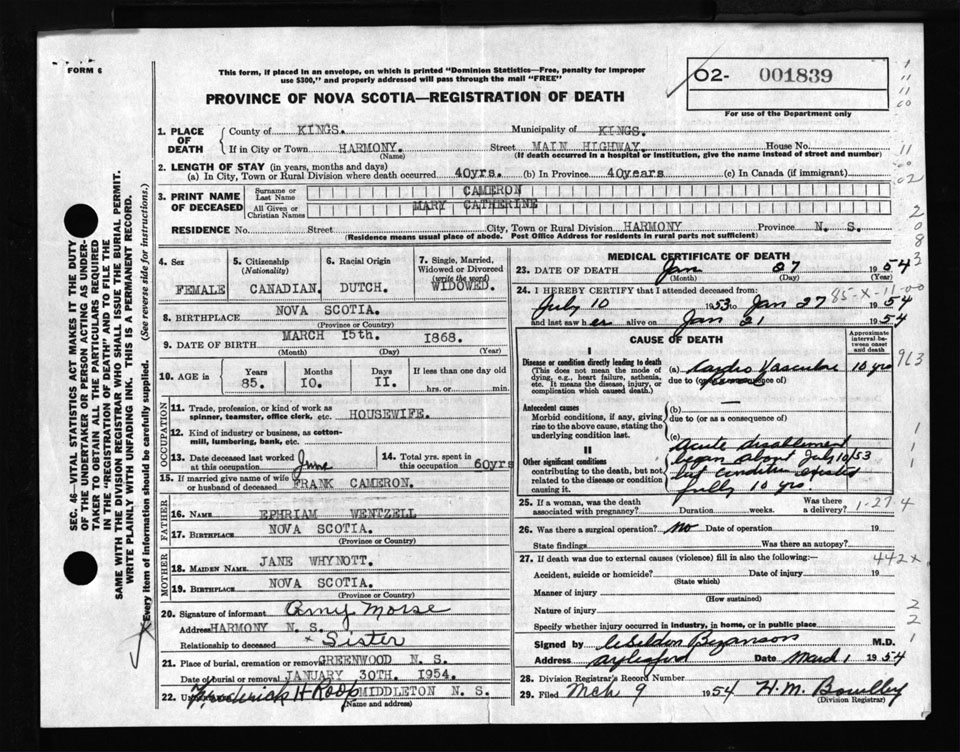 FORM 6
This form, if placed in an envelope, on which is printed "Dominion Statistics—Free, penalty for improper
use $300," and properly addressed will pass through the mail "FREE"
PROVINCE OF NOVA SCOTIA—REGISTRATION OF DEATH
02- 001839
For use of the Department only
SEC. 46—VITAL STATISTICS ACT MAKES IT THE DUTY
OF THE UNDERTAKER OR PERSON ACTING AS UNDER-
TAKER TO OBTAIN ALL THE PARTICULARS REQUIRED
IN THE "REGISTRATION OF DEATH" AND TO FILE THE
SAME WITH THE DIVISION REGISTRAR WHO SHALL ISSUE THE BURIAL PERMIT.
WRITE PLAINLY WITH UNFADING INK. THIS IS A PERMANENT RECORD.
Every item of information should be carefully supplied. (See reverse side for instructions.)
1. PLACE OF DEATH
County of KINGS. Municipality of KINGS.
If in City or Town HARMONY. Street MAIN HIGHWAY. House No.
(Name) (If death occurred in a hospital or institution, give the name instead of street and number)
2. LENGTH OF STAY (in years, months and days)
(a) In City, Town or Rural Division where death occurred 40yrs. (b) In Province 40years (c) In Canada (if immigrant)
3. PRINT NAME OF DECEASED
Surname or Last Name CAMERON
All Given or Christian Names MARY CATHERINE
RESIDENCE No. Street City, Town or Rural Division HARMONY Province N. S.
(Residence means usual place of abode. Post Office Address for residents in rural parts not sufficient)
4. Sex FEMALE
5. Citizenship (Nationality) CANADIAN.
6. Racial Origin DUTCH.
7. Single, Married, Widowed or Divorced (write the word) WIDOWED.
8. BIRTHPLACE NOVA SCOTIA.
(Province or Country)
9. DATE OF BIRTH MARCH 15th. 1868.
(Month) (Day) (Year)
10. AGE in Years 85. Months 10. Days 11. If less than one day old
hrs. or min.
OCCUPATION
11. Trade, profession, or kind of work as
spinner, teamster, office clerk, etc. HOUSEWIFE.
12. Kind of industry or business, as cotton-
mill, lumbering, bank, etc.
13. Date deceased last worked
at this occupation June
14. Total yrs. spent in
this occupation 60yrs
15. If married give name of wife
or husband of deceased FRANK CAMERON.
FATHER
16. NAME EPHRIAM WENTZELL
17. BIRTHPLACE NOVA SCOTIA.
(Province or Country)
MOTHER
18. MAIDEN NAME JANE WHYNOTT.
19. BIRTHPLACE NOVA SCOTIA.
(Province or Country)
20. Signature of informant Amy Morse
Address HARMONY N. S.
Relationship to deceased x Sister
21. Place of burial, cremation or removal GREENWOOD N. S.
Date of burial or removal JANUARY 30TH. 1954.
22. Frederick H Roop MIDDLETON N. S.
(Name and address)
MEDICAL CERTIFICATE OF DEATH
23. DATE OF DEATH Jan 27 1954
(Month) (Day)
24. I HEREBY CERTIFY that I attended deceased from:
July 10 1953 Jan 27 1954
85-X-11-00
and last saw her alive on Jan 21 1954
CAUSE OF DEATH
Approximate interval between onset and death
I
Disease or condition directly leading to death
(This does not mean the mode of
dying, e.g., heart failure, asthenia,
etc. It means the disease, injury, or
complication which caused death.)
(a) Cardio Vascular 10 yrs
due to (or as a consequence of)
Antecedent causes
Morbid conditions, if any, giving
rise to the above cause, stating the
underlying condition last.
(b) —
due to (or as a consequence of)
(c)
II
Other significant conditions
contributing to the death, but not
related to the disease or condition
causing it.
Acute disablement
began about July 10/53
but condition existed
fully 10 yrs.
25. If a woman, was the death
associated with pregnancy? Duration weeks. Was there
a delivery? 1-27-4
26. Was there a surgical operation? No Date of operation 19
State findings Was there an autopsy?
27. If death was due to external causes (violence) fill in also the following:—
442X
Accident, suicide or homicide? Date of injury 19
(State which)
Manner of injury
(How sustained)
Nature of injury
Specify whether injury occurred in industry, in home, or in public place
Signed by M.D.
Address Aylesford Date March 1 1954
28. Division Registrar's Record Number
29. Filed Mch 9 1954 H. M.
(Division Registrar)
913